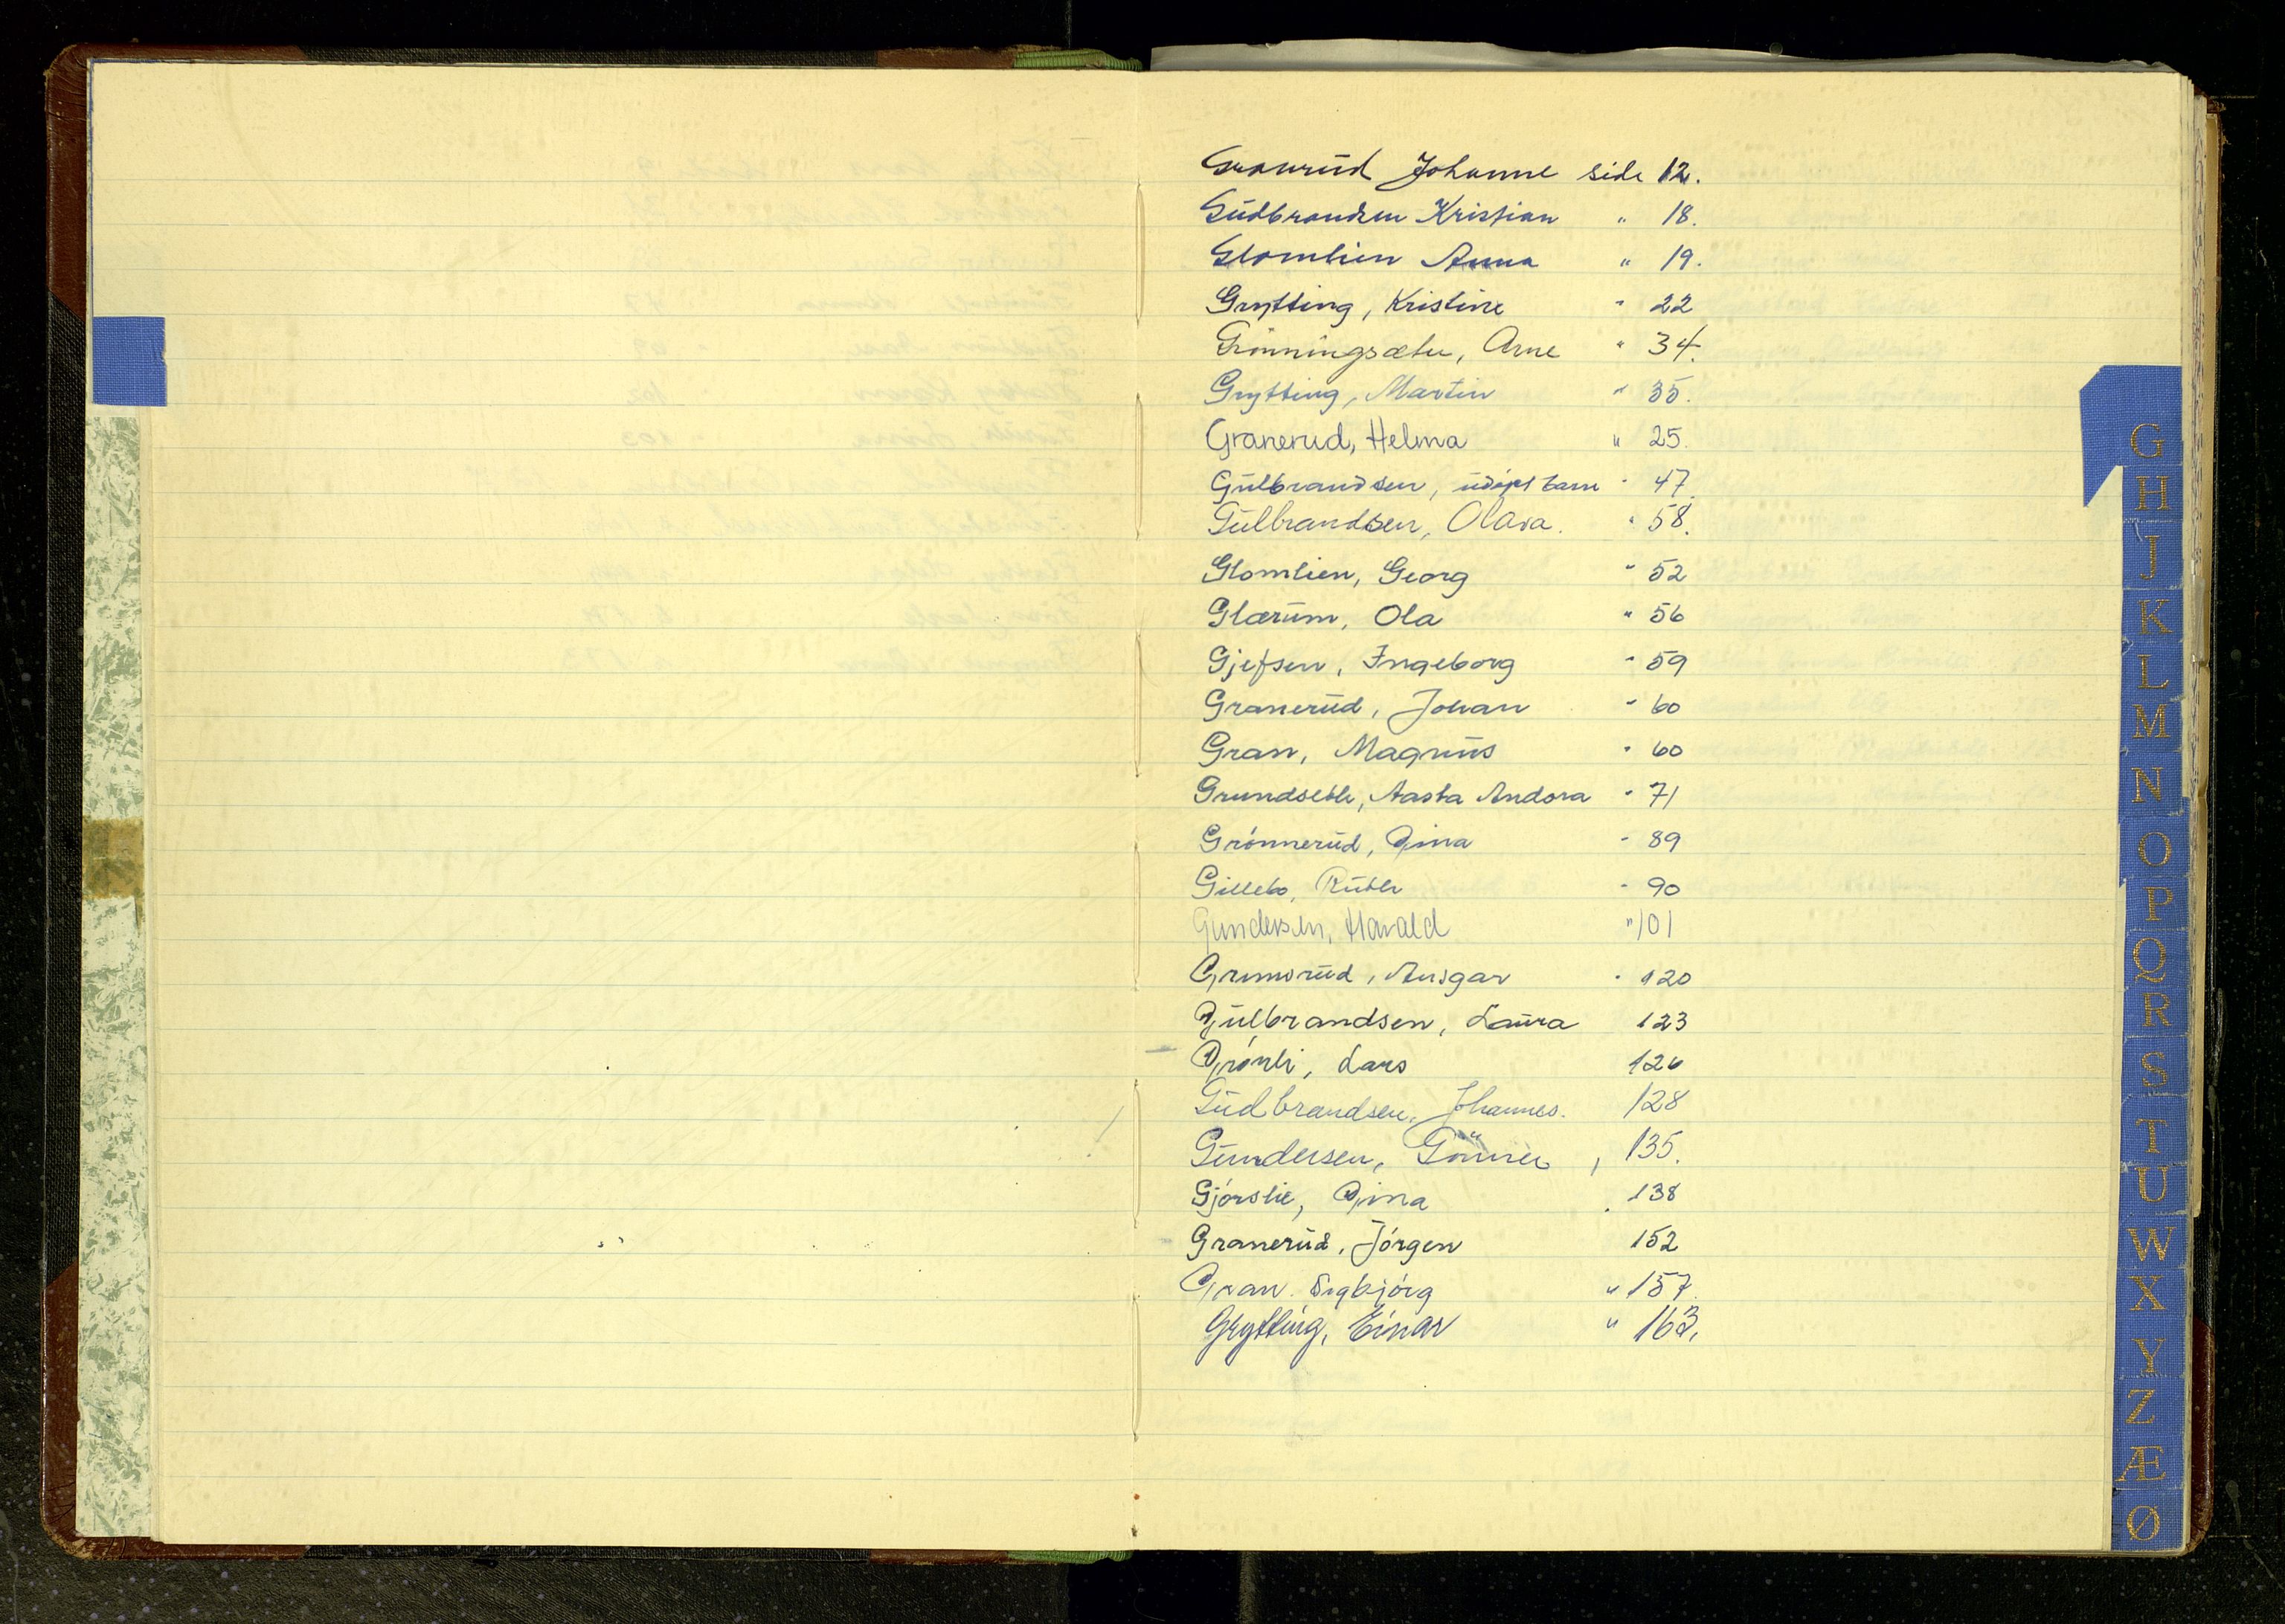 Granrud Johanne side 12.
Gudbrandsen Kristian " 18.
Glomlien Anna " 19.
Grytting, Kristine " 22
Grønningsæter, Arne " 34.
Grytting, Martin " 35.
Granerud, Helma " 25.
Gulbrandsen, udøpt barn " 47.
Gulbrandsen, Olava. " 58.
Glomlien, Georg " 52
Glærum, Ola " 56
Gjefsen, Ingeborg " 59
Granerud, Johan " 60
Gran, Magnus " 60
Grundseth, Aasta Andora " 71
Grønnerud, Gina " 89
Gillebo, Ruth " 90
Gundersen, Harald " 101
Grimsrud, Ansgar " 120
Gulbrandsen, Laura 123
Grønli, Lars 126
Gudbrandsen, Johannes. 128
Gundersen, Gunner, 135.
Gjørslie, Gina . 138
Granerud, Jørgen 152
Gran. Sigbjørg " 157.
Grytting, Einar " 163.
G
H
J
K
L
M
N
O
P
Q
R
S
T
U
W
X
Y
Z
Æ
Ø